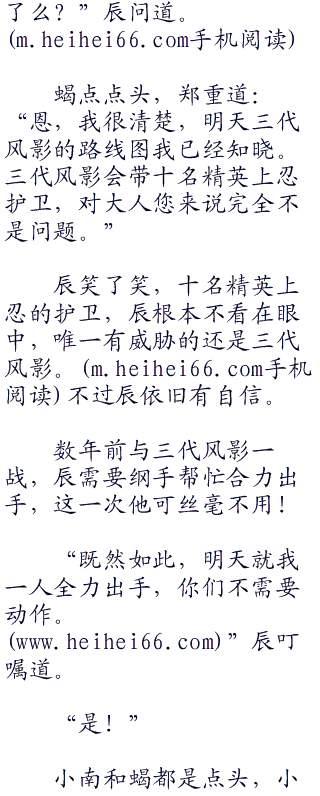 了么？”辰问道。
(m.heihei66.com手机阅读)
蝎点点头，郑重道：
“恩，我很清楚，明天三代
风影的路线图我已经知晓。
三代风影会带十名精英上忍
护卫，对大人您来说完全不
是问题。”
辰笑了笑，十名精英上
忍的护卫，辰根本不看在眼
中，唯一有威胁的还是三代
风影。(m.heihei66.com手机
阅读)不过辰依旧有自信。
数年前与三代风影一
战，辰需要纲手帮忙合力出
手，这一次他可丝毫不用！
“既然如此，明天就我
一人全力出手，你们不需要
动作。
(www.heihei66.com)”辰叮
嘱道。
“是！”
小南和蝎都是点头，小